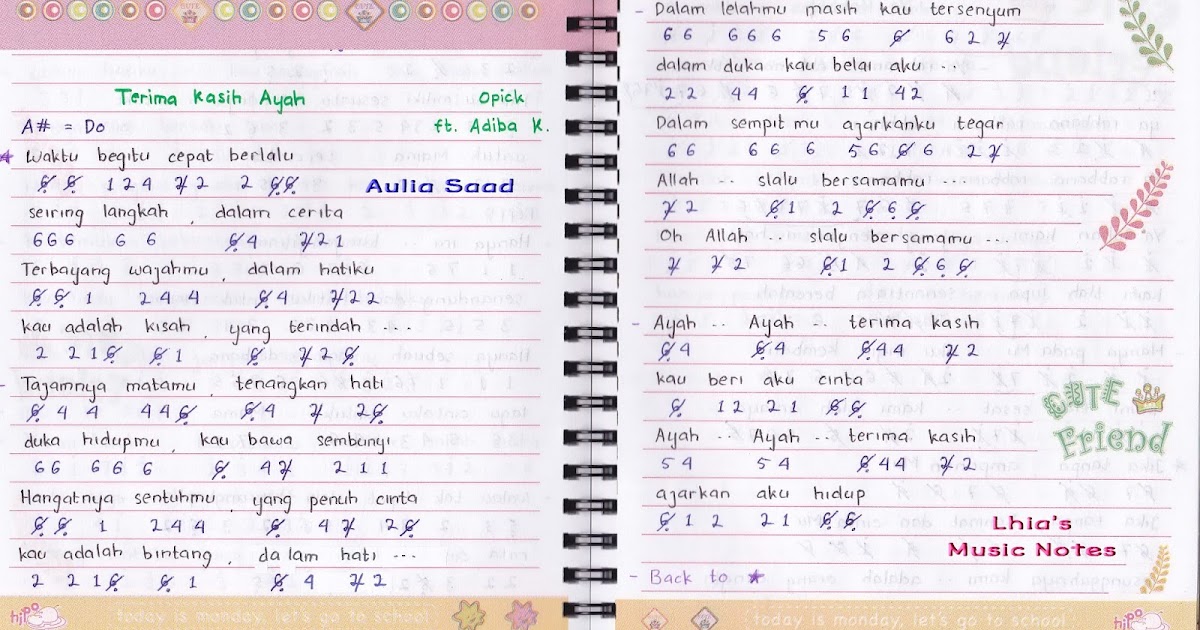 Terima Kasih Ayah Opick
A# = Do ft. Adiba K.
★ Waktu begitu cepat berlalu
6̸ 6̸ 1 2 4 7̸ 2 2 6̸ 6̸
Aulia Saad
seiring langkah , dalam cerita
6 6 6 6 6 6̸ 4 7̸ 2 1
Terbayang wajahmu , dalam hatiku
6̸ 6̸ 1 2 4 4 6̸ 4 7̸ 2 2
kau adalah kisah , yang terindah ....
2 2 1 6̸ 6̸ 1 6̸ 7̸ 2 6̸
- Tajamnya matamu , tenangkan hati
6̸ 4 4 4 4 6̸ 6̸ 4 7̸ 2 6̸
duka hidupmu , kau bawa sembunyi
6 6 6 6 6 6̸ 4 7̸ 2 1 1
Hangatnya sentuhmu , yang penuh cinta
6̸ 6̸ 1 2 4 4 6̸ 4 7̸ 2 6̸
kau adalah bintang , dalam hati ...
2 2 1 6̸ 6̸ 1 6̸ 4 7̸ 2
hippo today is monday, let's go to school
- Dalam lelahmu masih kau tersenyum
6 6 6 6 6 5 6 6̸ 6 2 7̸
dalam duka kau belai aku ...
2 2 4 4 6̸ 1 1 4 2
Dalam sempit mu ajarkanku tegar
6 6 6 6 6 5 6 6̸ 6 2 7̸
Allah .. slalu bersamamu ....
7̸ 2 6̸ 1 2 6̸ 6̸ 6̸
Oh Allah ... slalu bersamamu ...
7̸ 7̸ 2 6̸ 1 2 6̸ 6̸ 6̸
- Ayah .. Ayah ... terima kasih
6̸ 4 6̸ 4 6̸ 4 4 7̸ 2
kau beri aku cinta
6̸ 1 2 2 1 6̸ 6̸
CUTE Friend
Ayah .. Ayah ... terima kasih
5 4 5 4 6̸ 4 4 7̸ 2
ajarkan aku hidup
6̸ 1 2 2 1 6̸ 6̸
Lhia's
Music Notes
- Back to ★
today is monday, let's go to school hippo